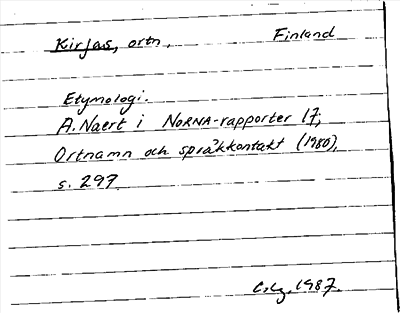 Kirjas, ortn. Finland
Etymologi.
A. Naert i NORNA-rapporter 17;
Ortnamn och språkkontakt (1980),
s. 297.
1987.